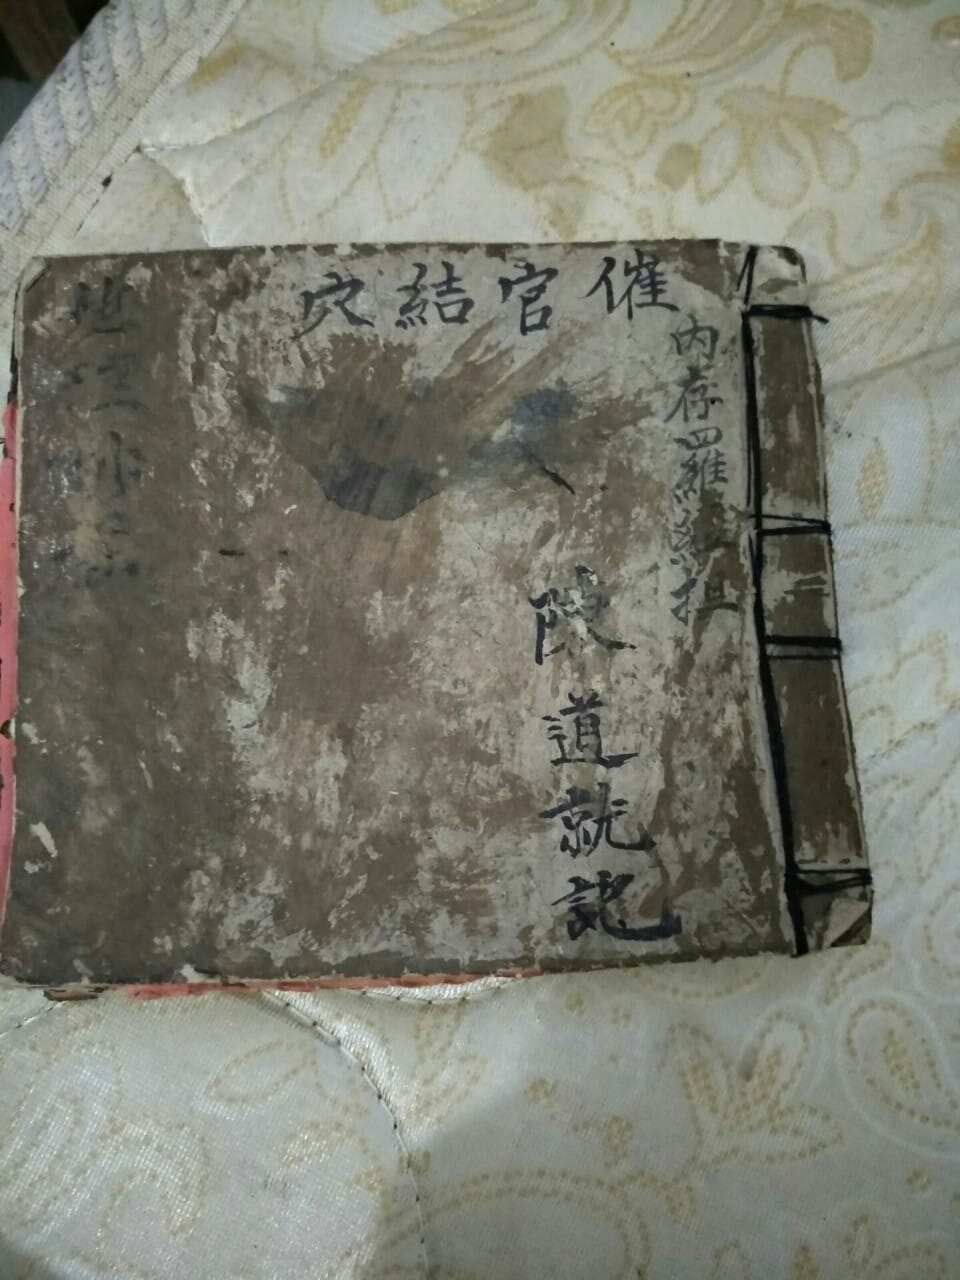 催官結穴
內存四羅經扗
陳道就記
地理